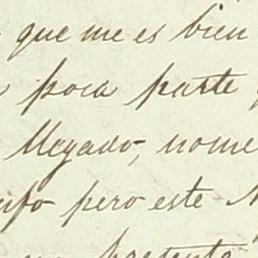 que me es bien
poca parte
llegado, nome
po pero este